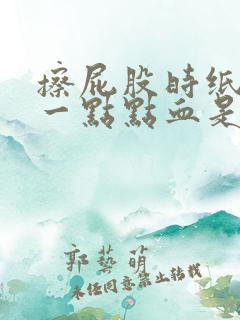 擦屁股时纸
一點點血是
郭藝萌
未经同意禁止转载